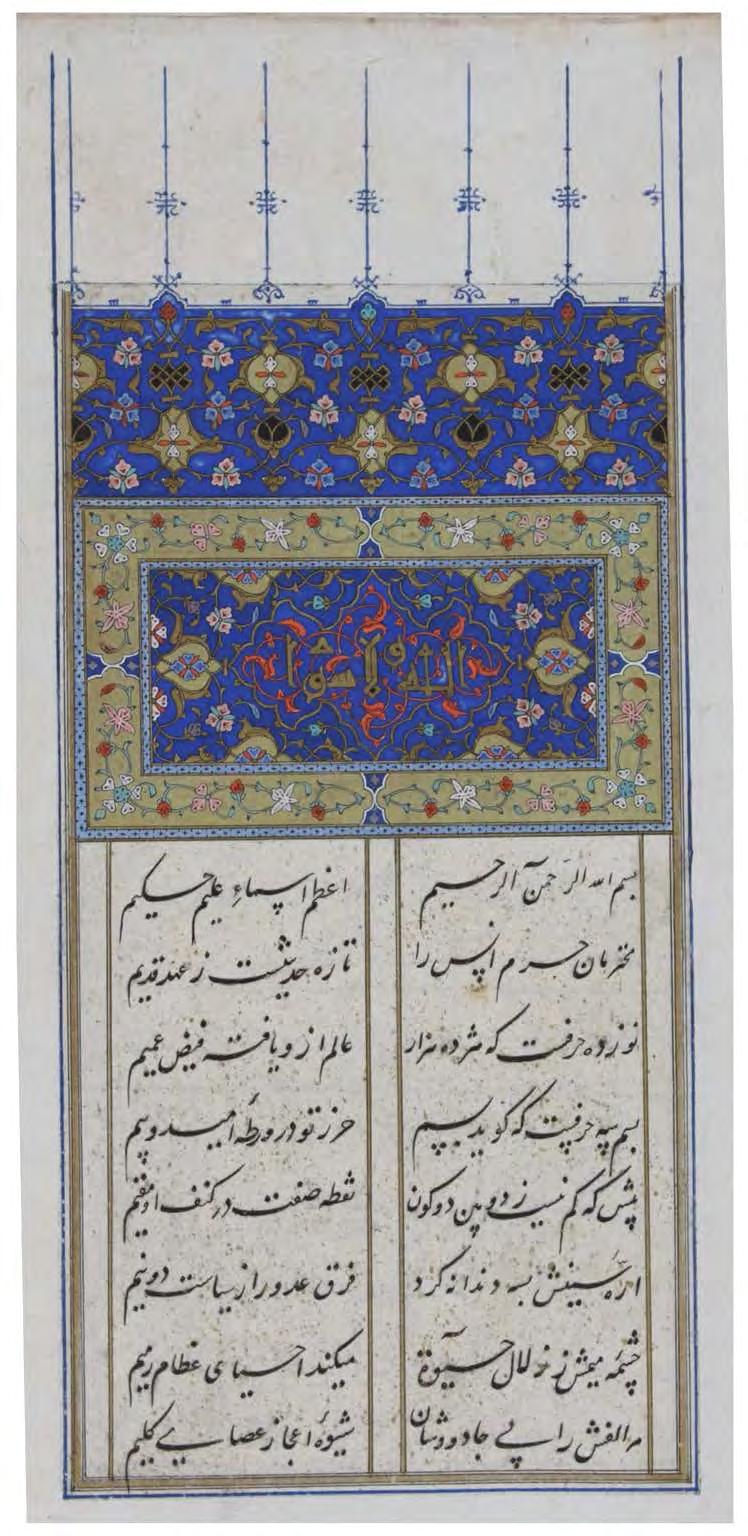 الله ولا سواه
بسم الله الرحمن الرحیم اعظم اسماءِ علیم حکیم
محرمان حرم انس را تازه حدیثیست ز عهد قدیم
نوزده حرفست که هژده هزار عالم ازو یافته فیض عمیم
بسم سه حرفیست که گوید حرز تو در ورطهٔ امید و بیم
که کم نیست ز دو بین دو کون نقطه صفت در کنف او مقیم
ارهٔ سینش بسه دندانه کرد فرق عدو را ز سیاست دو نیم
چشمهٔ میمش ز زلال حیوة میکند احیای عظام رمیم
مر الفش را پی جادووشان شیوهٔ اعجاز عصای کلیم